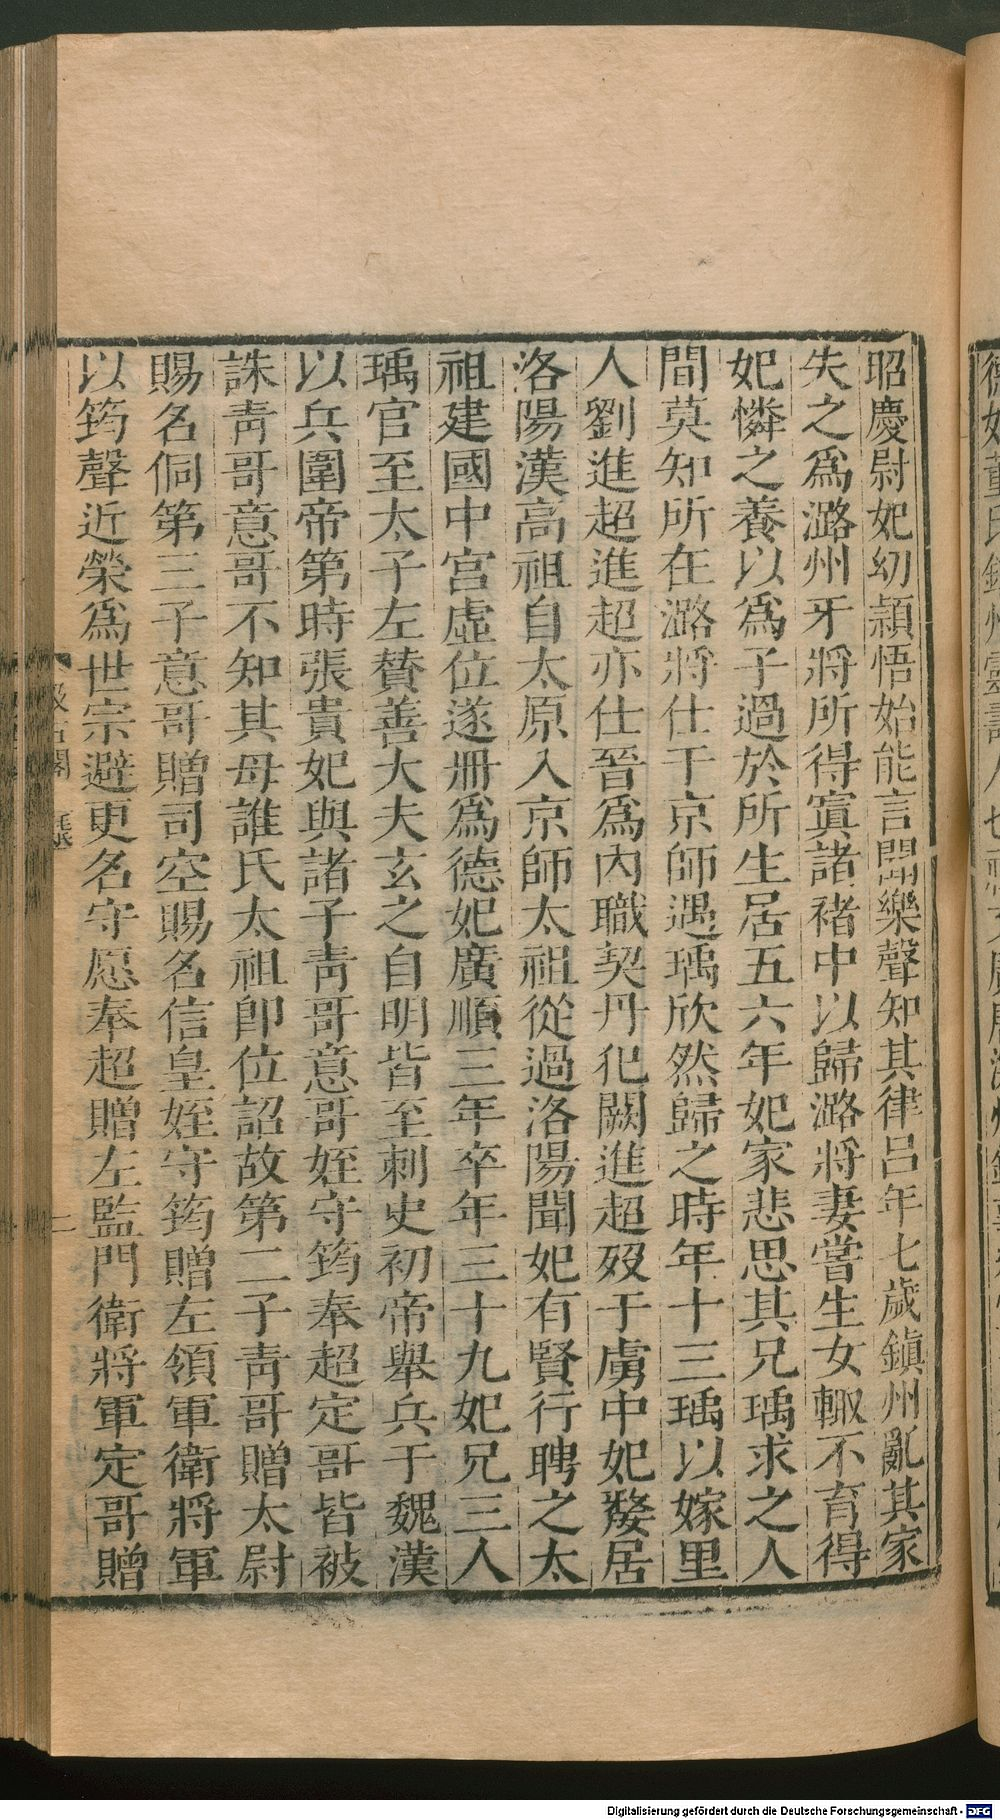 昭慶尉妃幼穎悟始能言聞樂聲知其律呂年七歲鎭州亂其家
失之爲潞州牙將所得寘諸褚中以歸潞將妻嘗生女輙不育得
妃憐之養以爲子過於所生居五六年妃家悲思其兄瑀求之人
間莫知所在潞將仕于京師遇瑀欣然歸之時年十三瑀以嫁里
人劉進超進超亦仕晉爲內職契丹犯闕進超歿于虜中妃嫠居
洛陽漢高祖自太原入京師太祖從過洛陽聞妃有賢行聘之太
祖建國中宮虛位遂冊爲德妃廣順三年卒年三十九妃兄三人
瑀官至太子左贊善大夫玄之自明皆至刺史初帝舉兵于魏漢
以兵圍帝第時張貴妃與諸子靑哥意哥姪守筠奉超定哥皆被
誅靑哥意哥不知其母誰氏太祖卽位詔故第二子靑哥贈太尉
賜名侗第三子意哥贈司空賜名信皇姪守筠贈左領軍衛將軍
以筠聲近榮爲世宗避更名守愿奉超贈左監門衛將軍定哥贈